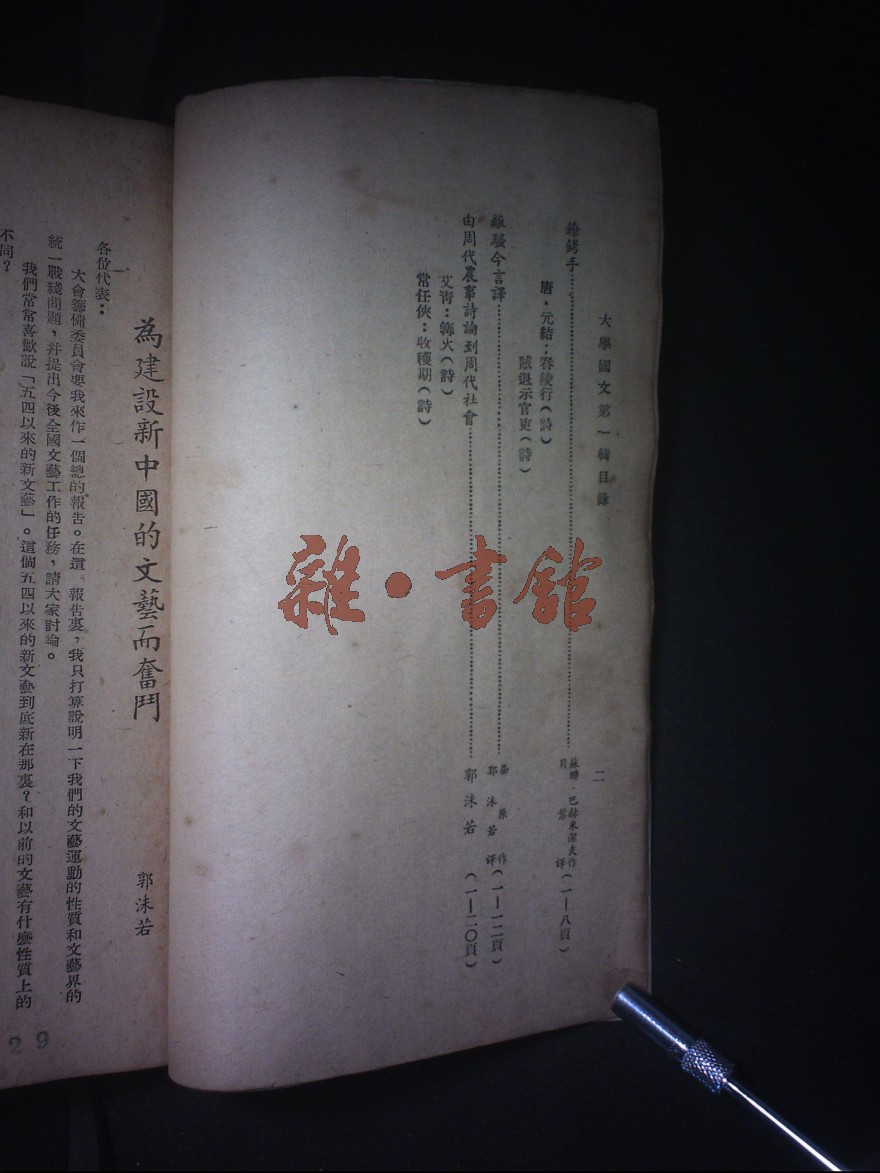 大學國文第一輯目錄 二
鐐銬手……蘇聯·巴赫米潔夫作
貝 紫 譯(一—八頁)
唐·元結:舂陵行(詩)
賊退示官吏(詩)
離騷今言譯……屈 原 作
郭 沫 若 譯(一—一二頁)
由周代農事詩論到周代社會……郭 沫 若(一—二〇頁)
艾青:篝火(詩)
常任俠:收穫期(詩)
雜·書館
為建設新中國的文藝而奮鬥
郭沫若
各位代表:
大會籌備委員會要我來作一個總的報告。在這 報告裏,我只打算說明一下我們的文藝運動的性質和文藝界的
統一戰綫問題,并提出今後全國文藝工作的任務,請大家討論。
我們常常喜歡說「五四以來的新文藝」。這個五四以來的新文藝到底新在那裏?和以前的文藝有什麼性質上的
不同?
29